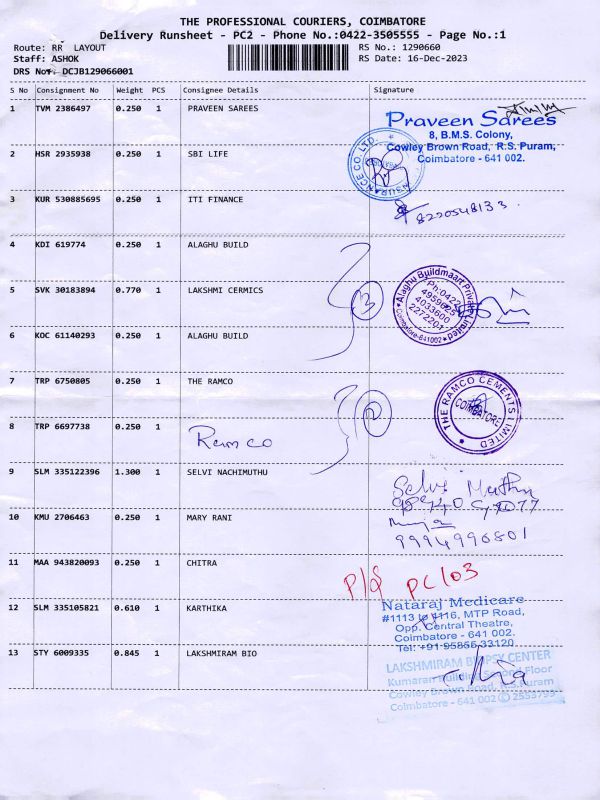 THE PROFESSIONAL COURIERS, COIMBATORE
Delivery Runsheet - PC2 - Phone No.:0422-3505555 - Page No.:1
Route: RR LAYOUT
Staff: ASHOK
DRS No.: DCJB129066001
RS No.: 1290660
RS Date: 16-Dec-2023
S No Consignment No Weight PCS Consignee Details Signature
1 TVM 2386497 0.250 1 PRAVEEN SAREES
Praveen Sarees
8, B.M.S. Colony,
Cowley Brown Road, R.S. Puram,
Coimbatore - 641 002.
2 HSR 2935938 0.250 1 SBI LIFE
3 KUR 530885695 0.250 1 ITI FINANCE
8220548133
4 KDI 619774 0.250 1 ALAGHU BUILD
5 SVK 30183894 0.770 1 LAKSHMI CERMICS
3
Alaghu Buildmaart Private Limited
Ph:0422
4959625
4033600
2272201
Coimbatore-641002
6 KOC 61140293 0.250 1 ALAGHU BUILD
7 TRP 6750805 0.250 1 THE RAMCO
2
THE RAMCO CEMENTS LIMITED
COIMBATORE
8 TRP 6697738 0.250 1 Ramco
9 SLM 335122396 1.300 1 SELVI NACHIMUTHU
Selvi
10 KMU 2706463 0.250 1 MARY RANI
9994996801
11 MAA 943820093 0.250 1 CHITRA
PC/03
12 SLM 335105821 0.610 1 KARTHIKA
Nataraj Medicare
#1113 to 1116, MTP Road,
Opp. Central Theatre,
Coimbatore - 641 002.
Tel: +91-95856 33120
13 STY 6009335 0.845 1 LAKSHMIRAM BIO
LAKSHMIRAM BIOPSY CENTER
Kumaran Building, Second Floor
Cowley Brown Road, R.S.Puram
Coimbatore - 641 002 2553793